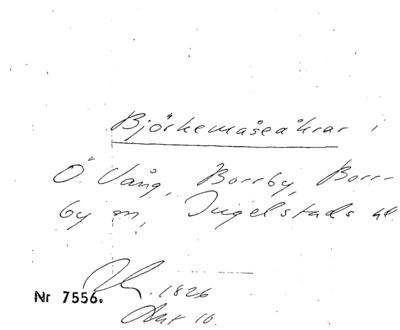 Björkemåseåkrar i
Ö. Vång, Borrby, Borr-
by sn, Ingelstads hd.
1826
Nr 7556.
Akt 10.